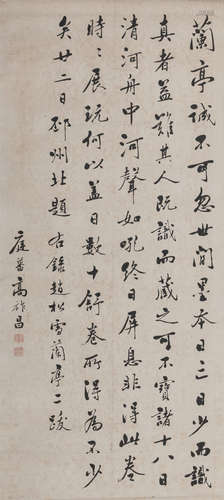 蘭亭誠不可忽世間墨本日亡日少而識
真者益難其人既識而藏之可不寶諸十八日
清河舟中河聲如吼終日屏息非得此卷
時〻展玩何以益日數十舒卷所得為不少
矣廿二日邳州北題右錄趙松雪蘭亭二跋
庭蕃高祚昌